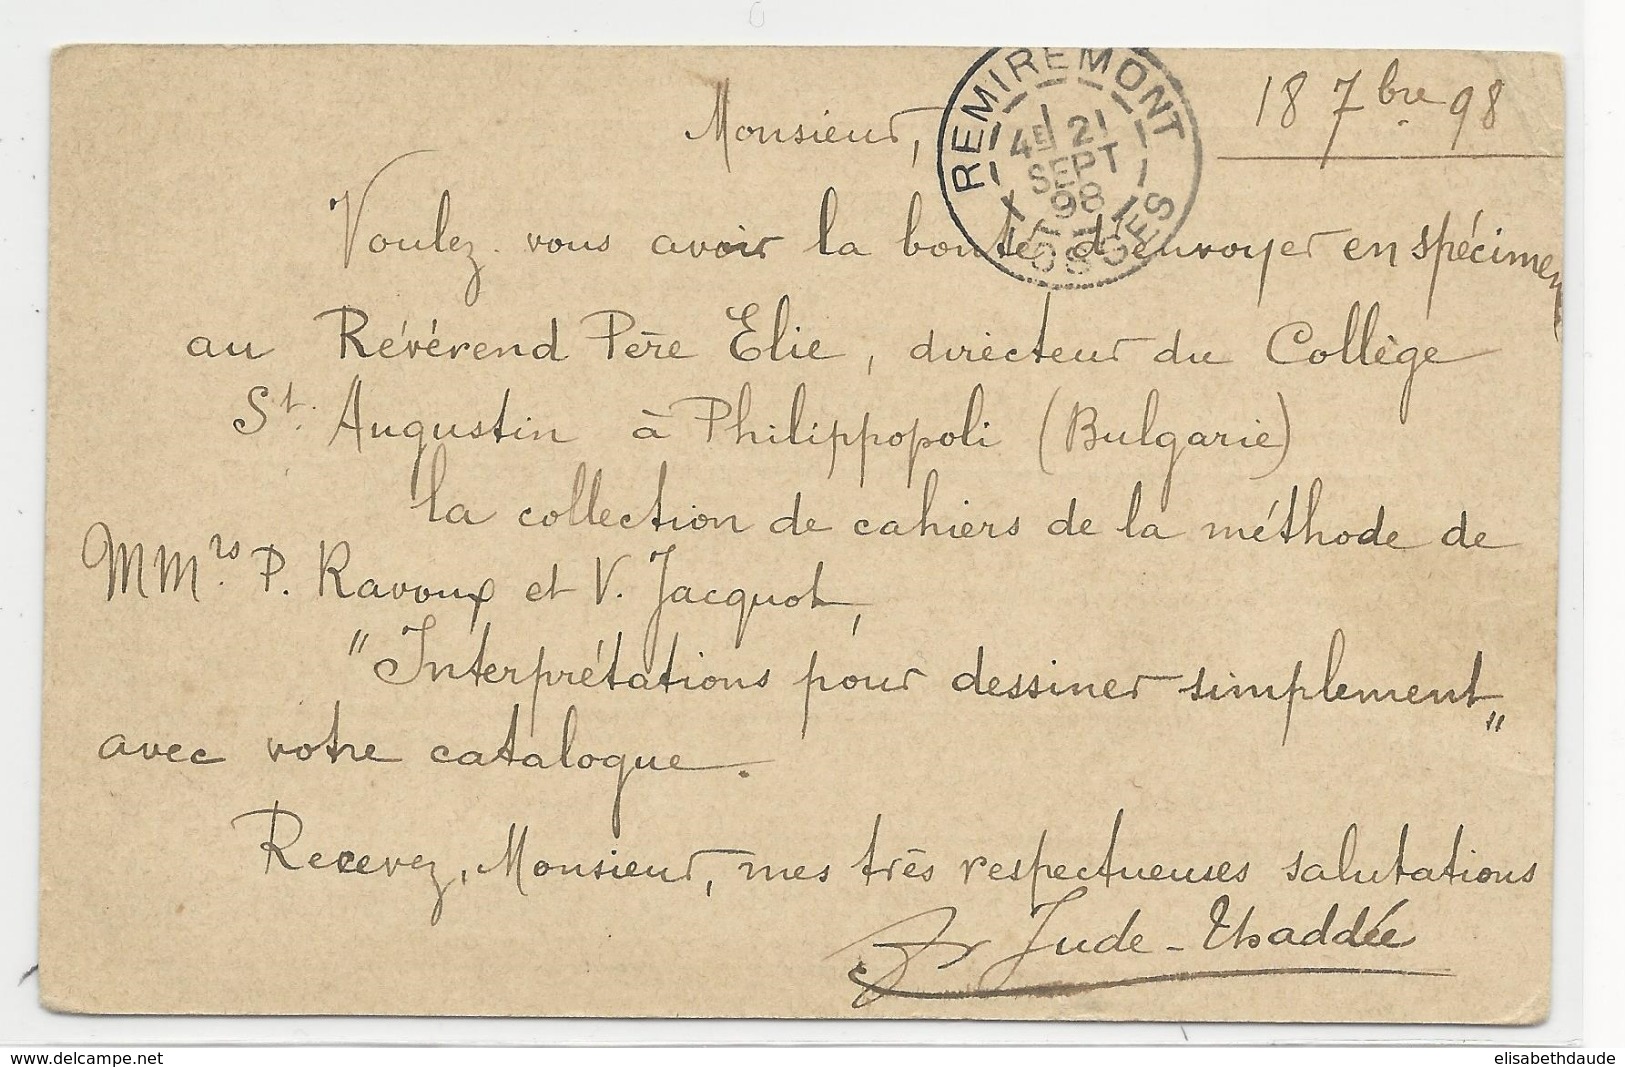 18 7bre 98
REMIREMONT
4E 21
SEPT
98
VOSGES
Monsieur,
Voulez-vous avoir la bonté d'envoyer en spécimen
au Révérend Père Elie, directeur du Collège
St. Augustin à Philippopoli (Bulgarie)
la collection de cahiers de la méthode de
MMrs. P. Ravoux et V. Jacquot,
"Interprétations pour dessiner simplement"
avec votre catalogue.
Recevez, Monsieur, mes très respectueuses salutations
fr Jude-Thaddée
www.delcampe.net
elisabethdaude